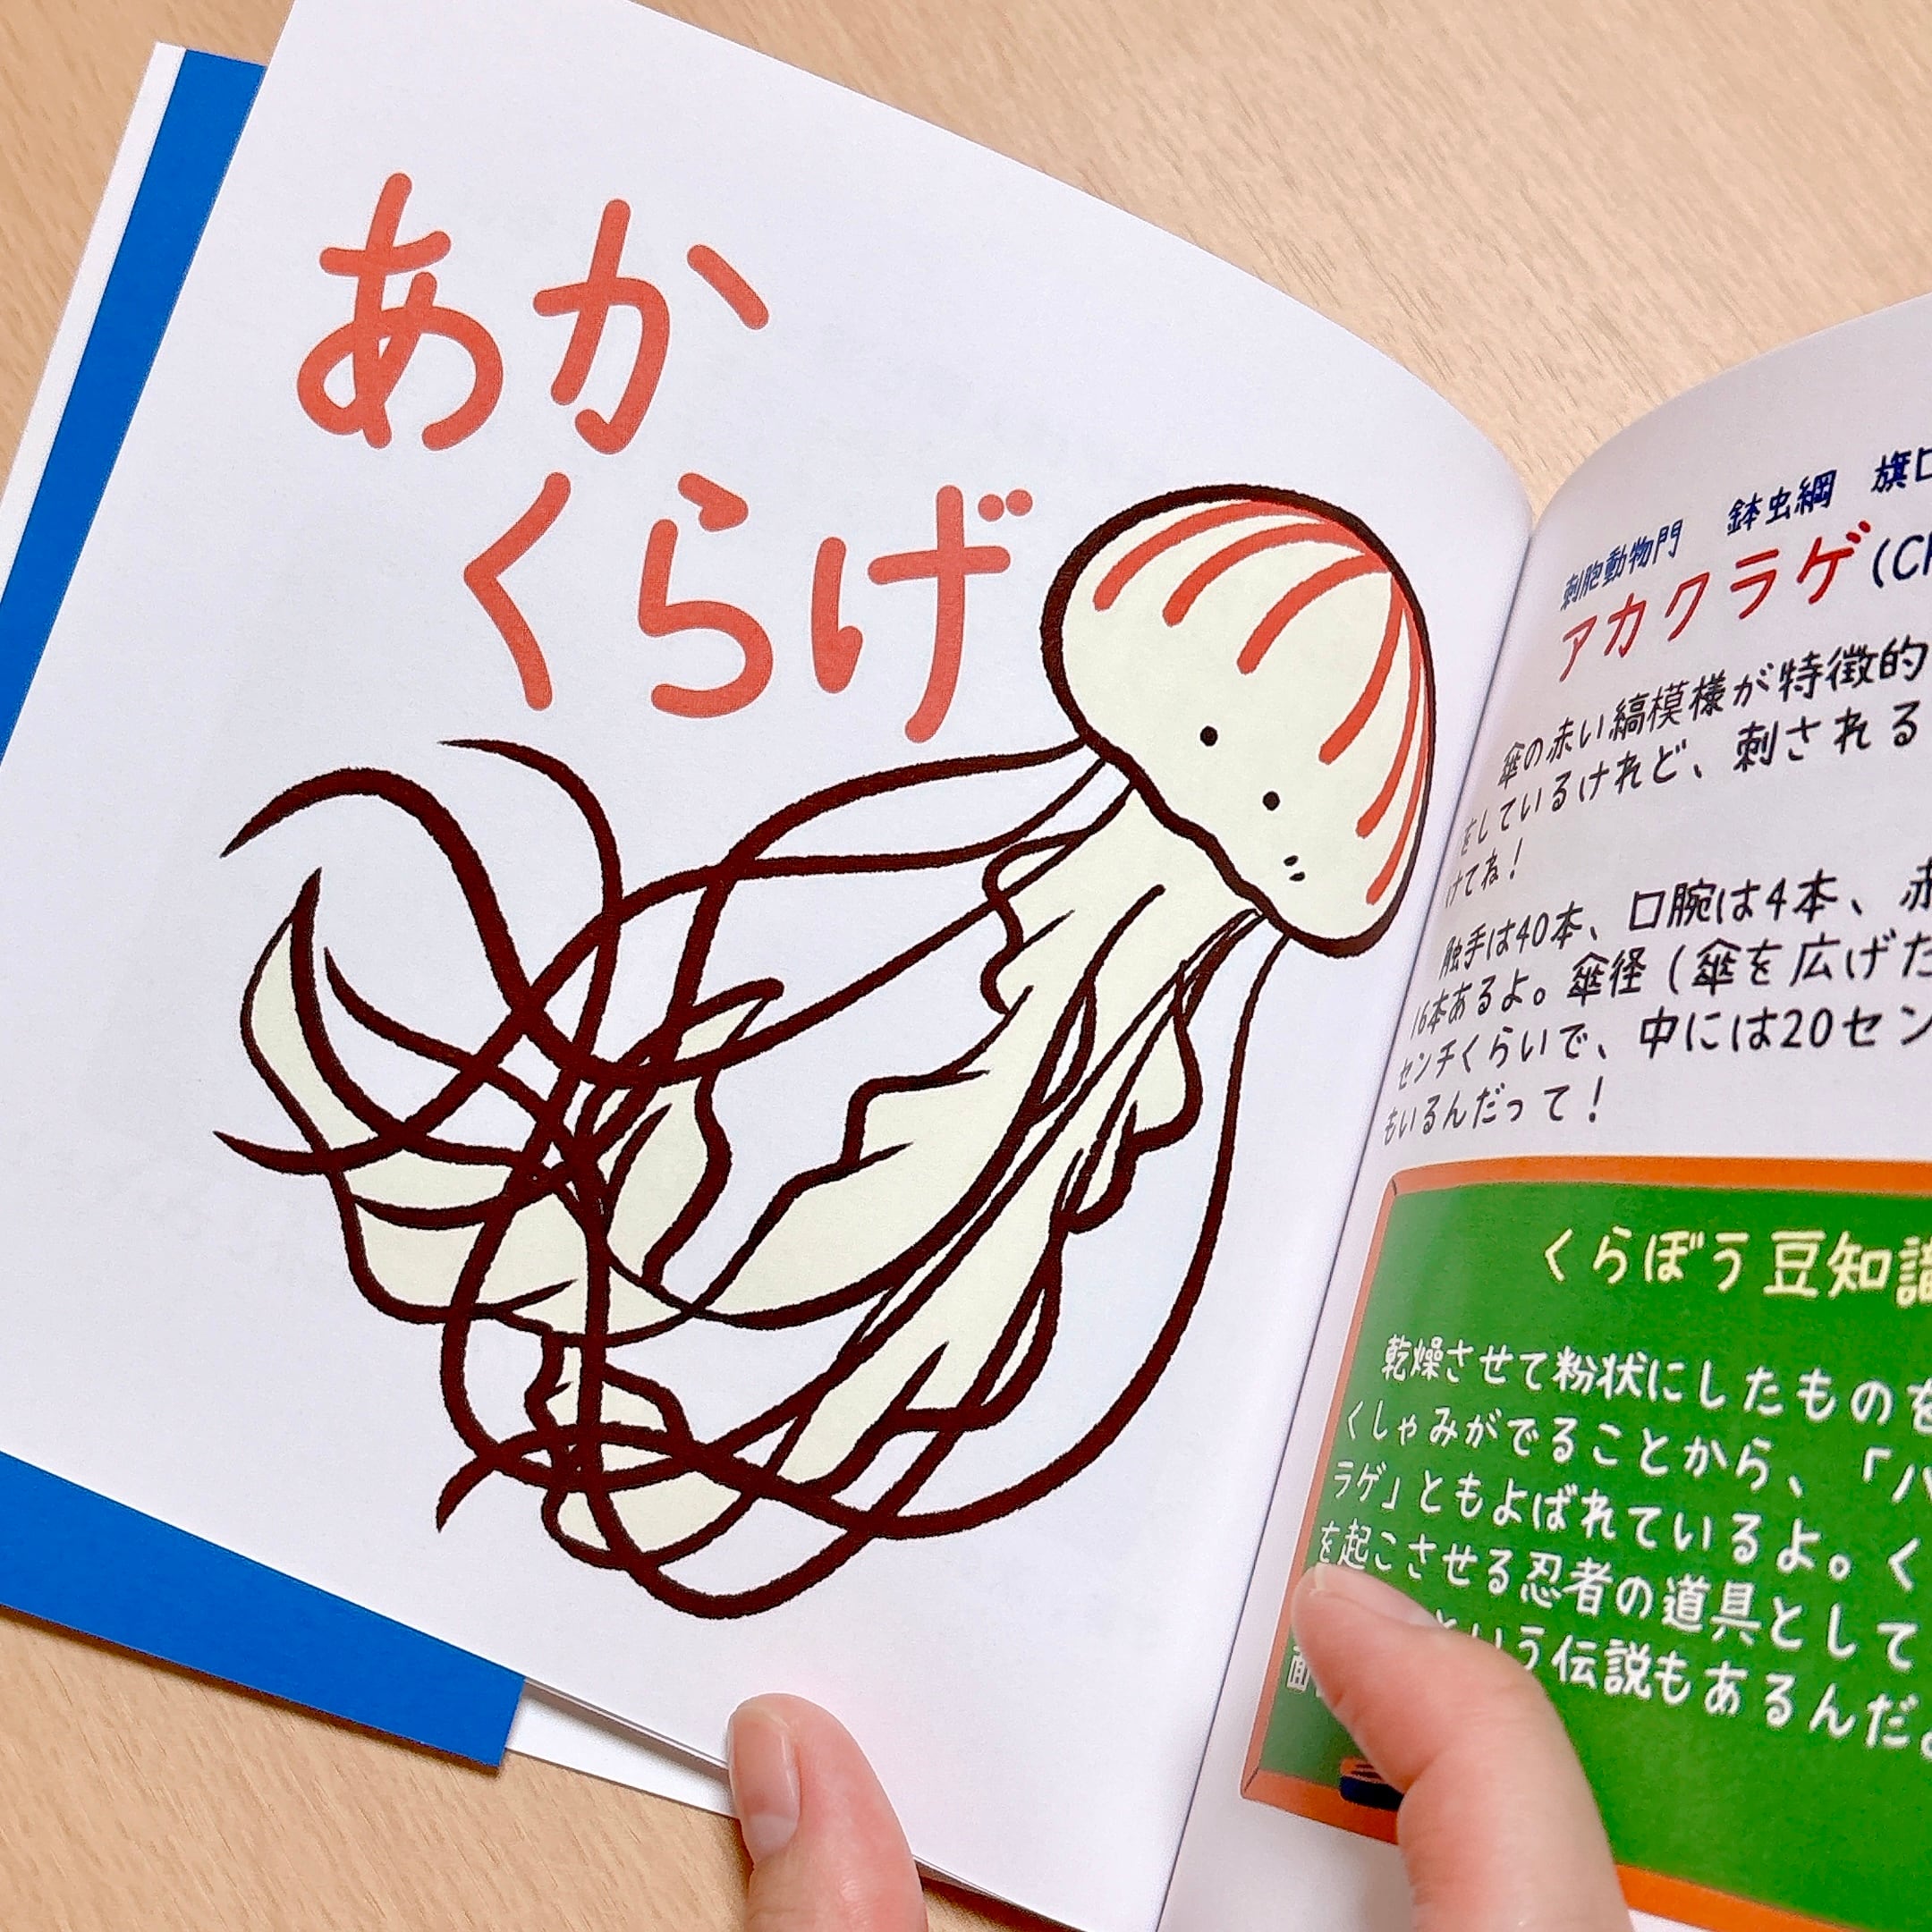 あか
くらげ
刺胞動物門 鉢虫綱 旗口
アカクラゲ(Ch
傘の赤い縞模様が特徴的
をしているけれど、刺される
けてね!
触手は40本、口腕は4本、赤
16本あるよ。傘径(傘を広げた
センチくらいで、中には20セン
もいるんだって!
くらぼう豆知識
乾燥させて粉状にしたものを
くしゃみがでることから、「ハ
ラゲ」ともよばれているよ。く
を起こさせる忍者の道具として
という伝説もあるんだよ